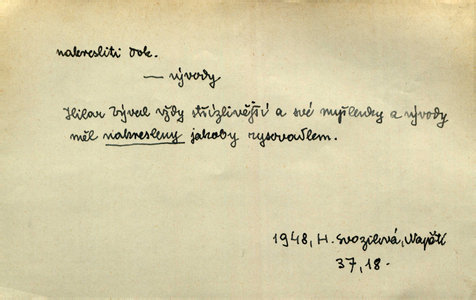 nakresliti dok.
— vývody
Hilar býval vždy střízlivější a své myšlenky a vývody
měl nakresleny jakoby rysovadlem.
1948, H. Svozilová, Napětí
37, 18.